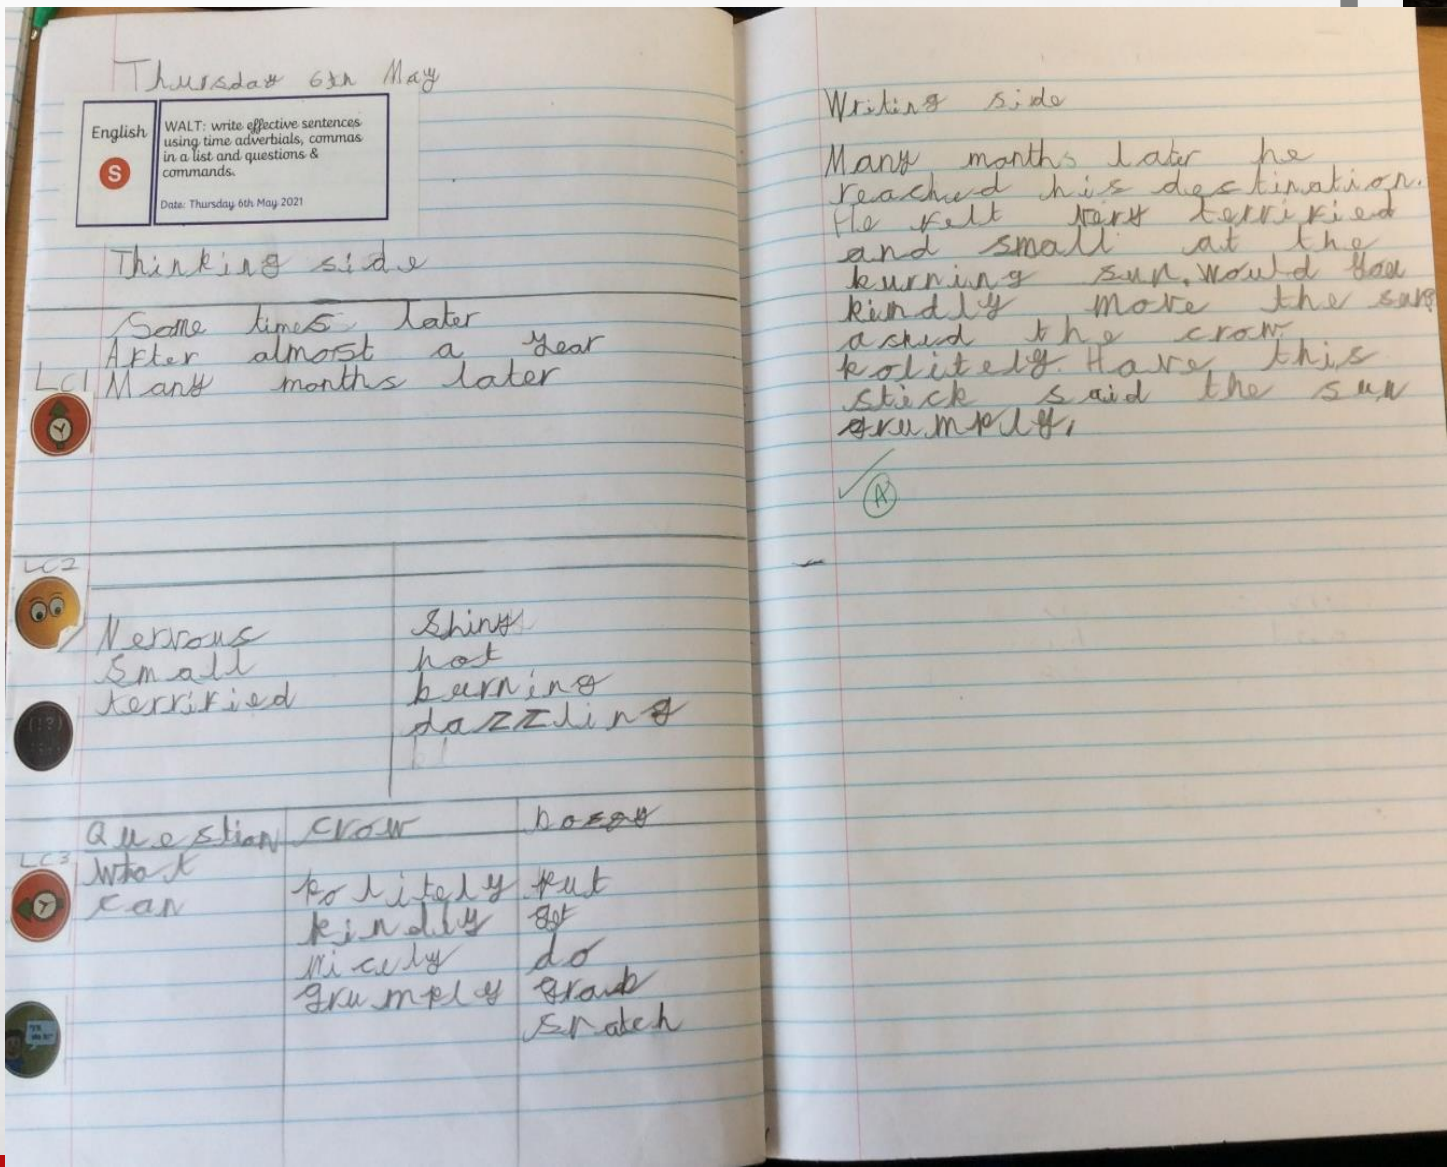 Thursday 6th May
English
S
WALT: write effective sentences
using time adverbials, commas
in a list and questions &
commands.
Date: Thursday 6th May 2021
Thinking side
Some times later
After almost a year
LC1 Many months later
LC2
Nervous
Small
terrified
Shiny
hot
burning
dazzling
LC3
Question
What
can
crow
politely
kindly
nicely
grumply
bossy
put
get
do
grab
snatch
Writing side
Many months later he
reached his destination.
He felt very terrified
and small at the
burning sun. Would you
kindly move the sun?
asked the crow
politely. Have this
stick said the sun
grumply.
A